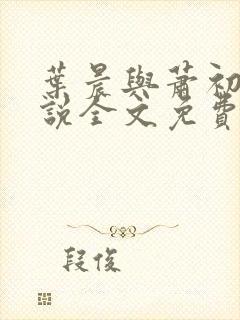 葉晨與蕭初
說全文免費
段俊